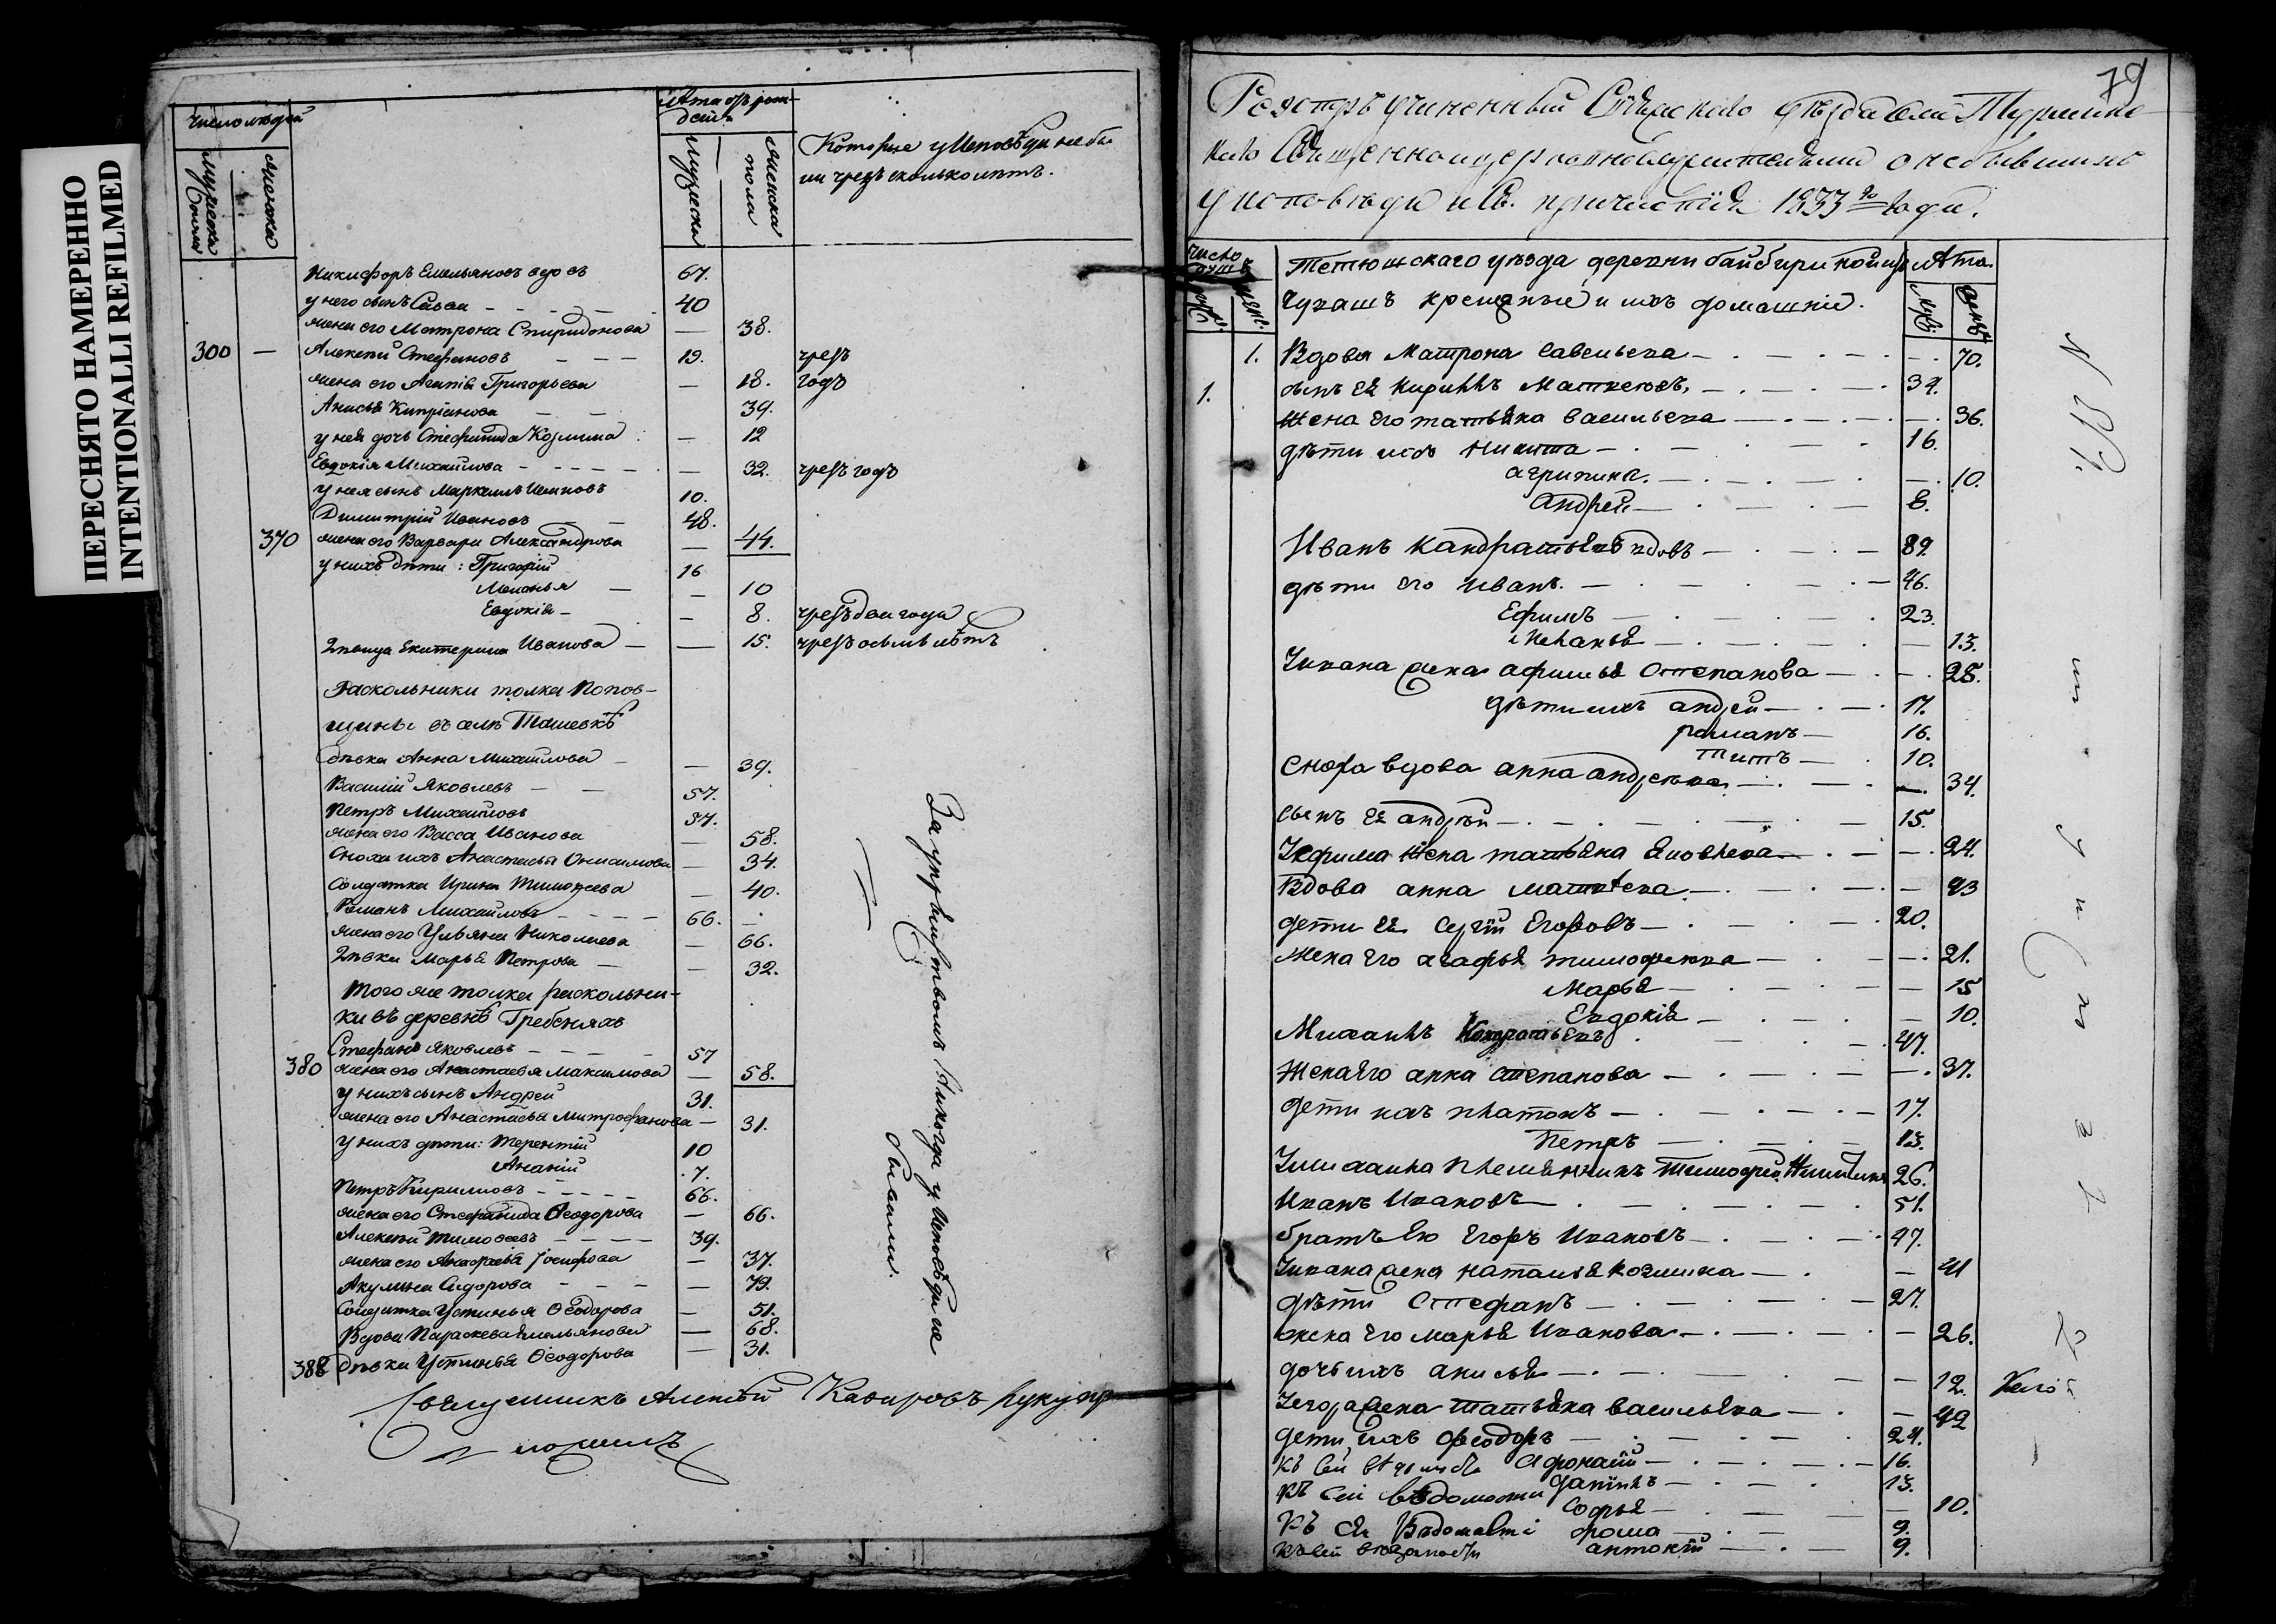 ПЕРЕСНЯТО НАМЕРЕННО
INTENTIONALLI REFILMED
число людей
мужеска пола
женска
лѣта отъ рожденiя
мужеска
женска пола
Которые у Исповѣди не были чрезъ сколько лѣтъ.
Никифоръ Емельяновъ вдовъ 67.
у него сынъ Савва 40
жена его Матрона Спиридонова — 38.
300 — Алексѣй Стефановъ 19. чрезъ
жена его Агапiя Григорьева — 18. годъ
Анисья Кипрiянова 39.
у нея дочь Стефанида Козмина — 12
Евдокiя Михайлова — 32. чрезъ годъ
у нея сынъ Маркеллъ Ивановъ 10.
Димитрiй Ивановъ 48.
370 жена его Варвара Александрова — 44.
у нихъ дѣти: Григорiй 16
Меланья — 10
Евдокiя — 8. чрезъ два года
дѣвица Екатерина Иванова — 15. чрезъ осьмь лѣтъ
Раскольники толка Попов-
щины въ селѣ Ташевкѣ
дѣвка Анна Михайлова — 39.
Василiй Яковлевъ 57.
Петръ Михайловъ 57.
жена его Васса Иванова — 58.
Сноха ихъ Анастасья Онисимова — 34.
Солдатка Ирина Тимофеева — 40.
Романъ Михайловъ 66.
жена его Ульяна Николаева — 66.
дѣвка Марья Петрова — 32.
Того же толка раскольни-
ки въ деревнѣ Гребеняхъ
Стефанъ Яковлевъ 57
380 жена его Анастасья Максимова — 58.
у нихъ сынъ Андрей 31.
жена его Анастасья Митрофанова — 31.
у нихъ дѣти: Терентiй 10
Ананiй 7.
Петръ Кириловъ 66.
жена его Стефанида Ѳеодорова — 66.
Алексѣй Тимоѳеевъ 39.
жена его Iосифова — 37.
Акулина Сидорова — 79.
Солдатка Устинья Ѳеодорова — 51.
Вдова Параскева Емельянова — 68.
388 дѣвка Устинья Ѳеодорова — 31.
За упрямствомъ никогда у исповѣди не бывали.
Священникъ Алексѣй руку приложилъ
79
Реэстръ учиненный уѣзда села
Священноцерковнослужительми о небывшихъ
у исповѣди и Св. причастiя 1833го года.
число душъ
муж.
жен.
Тетюшскаго уѣзда деревни
Чувашъ крещеные и ихъ домашнiи.
лѣта.
муж.
женс.
1. Вдова Матрона Савельева — 70.
1. сынъ ея Кирилъ Матвеювъ, 39.
Жена его татьяна васильева — 36.
дѣти ихъ Никита 16.
агрипина. — 10.
андрей 8.
Иванъ Кандратьевъ вдовъ 89
дѣти его Иванъ. 46.
Ефимъ 23.
Меланья — 13.
Уивана жена афимья Степанова — 28.
дѣти ихъ андрей 17.
раманъ 16.
титъ 10.
Сноха вдова анна андреева — 34.
сынъ ея андрѣй 15.
Уефима жена татьяна Яковлева — 24.
Вдова анна матвеева — 43
дети ея Сергѣй Егоровъ 20.
жена его агафья тимофеева — 21.
Марья — 15
Евдокiя — 10.
Михаилъ Кондратьевъ 47.
Жена его анна степанова — 37.
дети ихъ платонъ 17.
Петръ 13.
Умихаила племянникъ тимофей 26.
Иванъ Ивановъ 51.
братъ Ево Егоръ Ивановъ 47.
Уивана жена наталья козмина — 41
дѣти Стефанъ 27.
жена Его марья Иванова — 26.
дочь ихъ анисья — 12.
Уегора жена татьяна васильева — 42
дети, ихъ федоръ 24.
Къ сей афонасiй 16.
Къ сей вѣдомости данiилъ 13.
Софья — 10.
Къ сей Вѣдомости фома 9.
Къ сей антонiй 9.